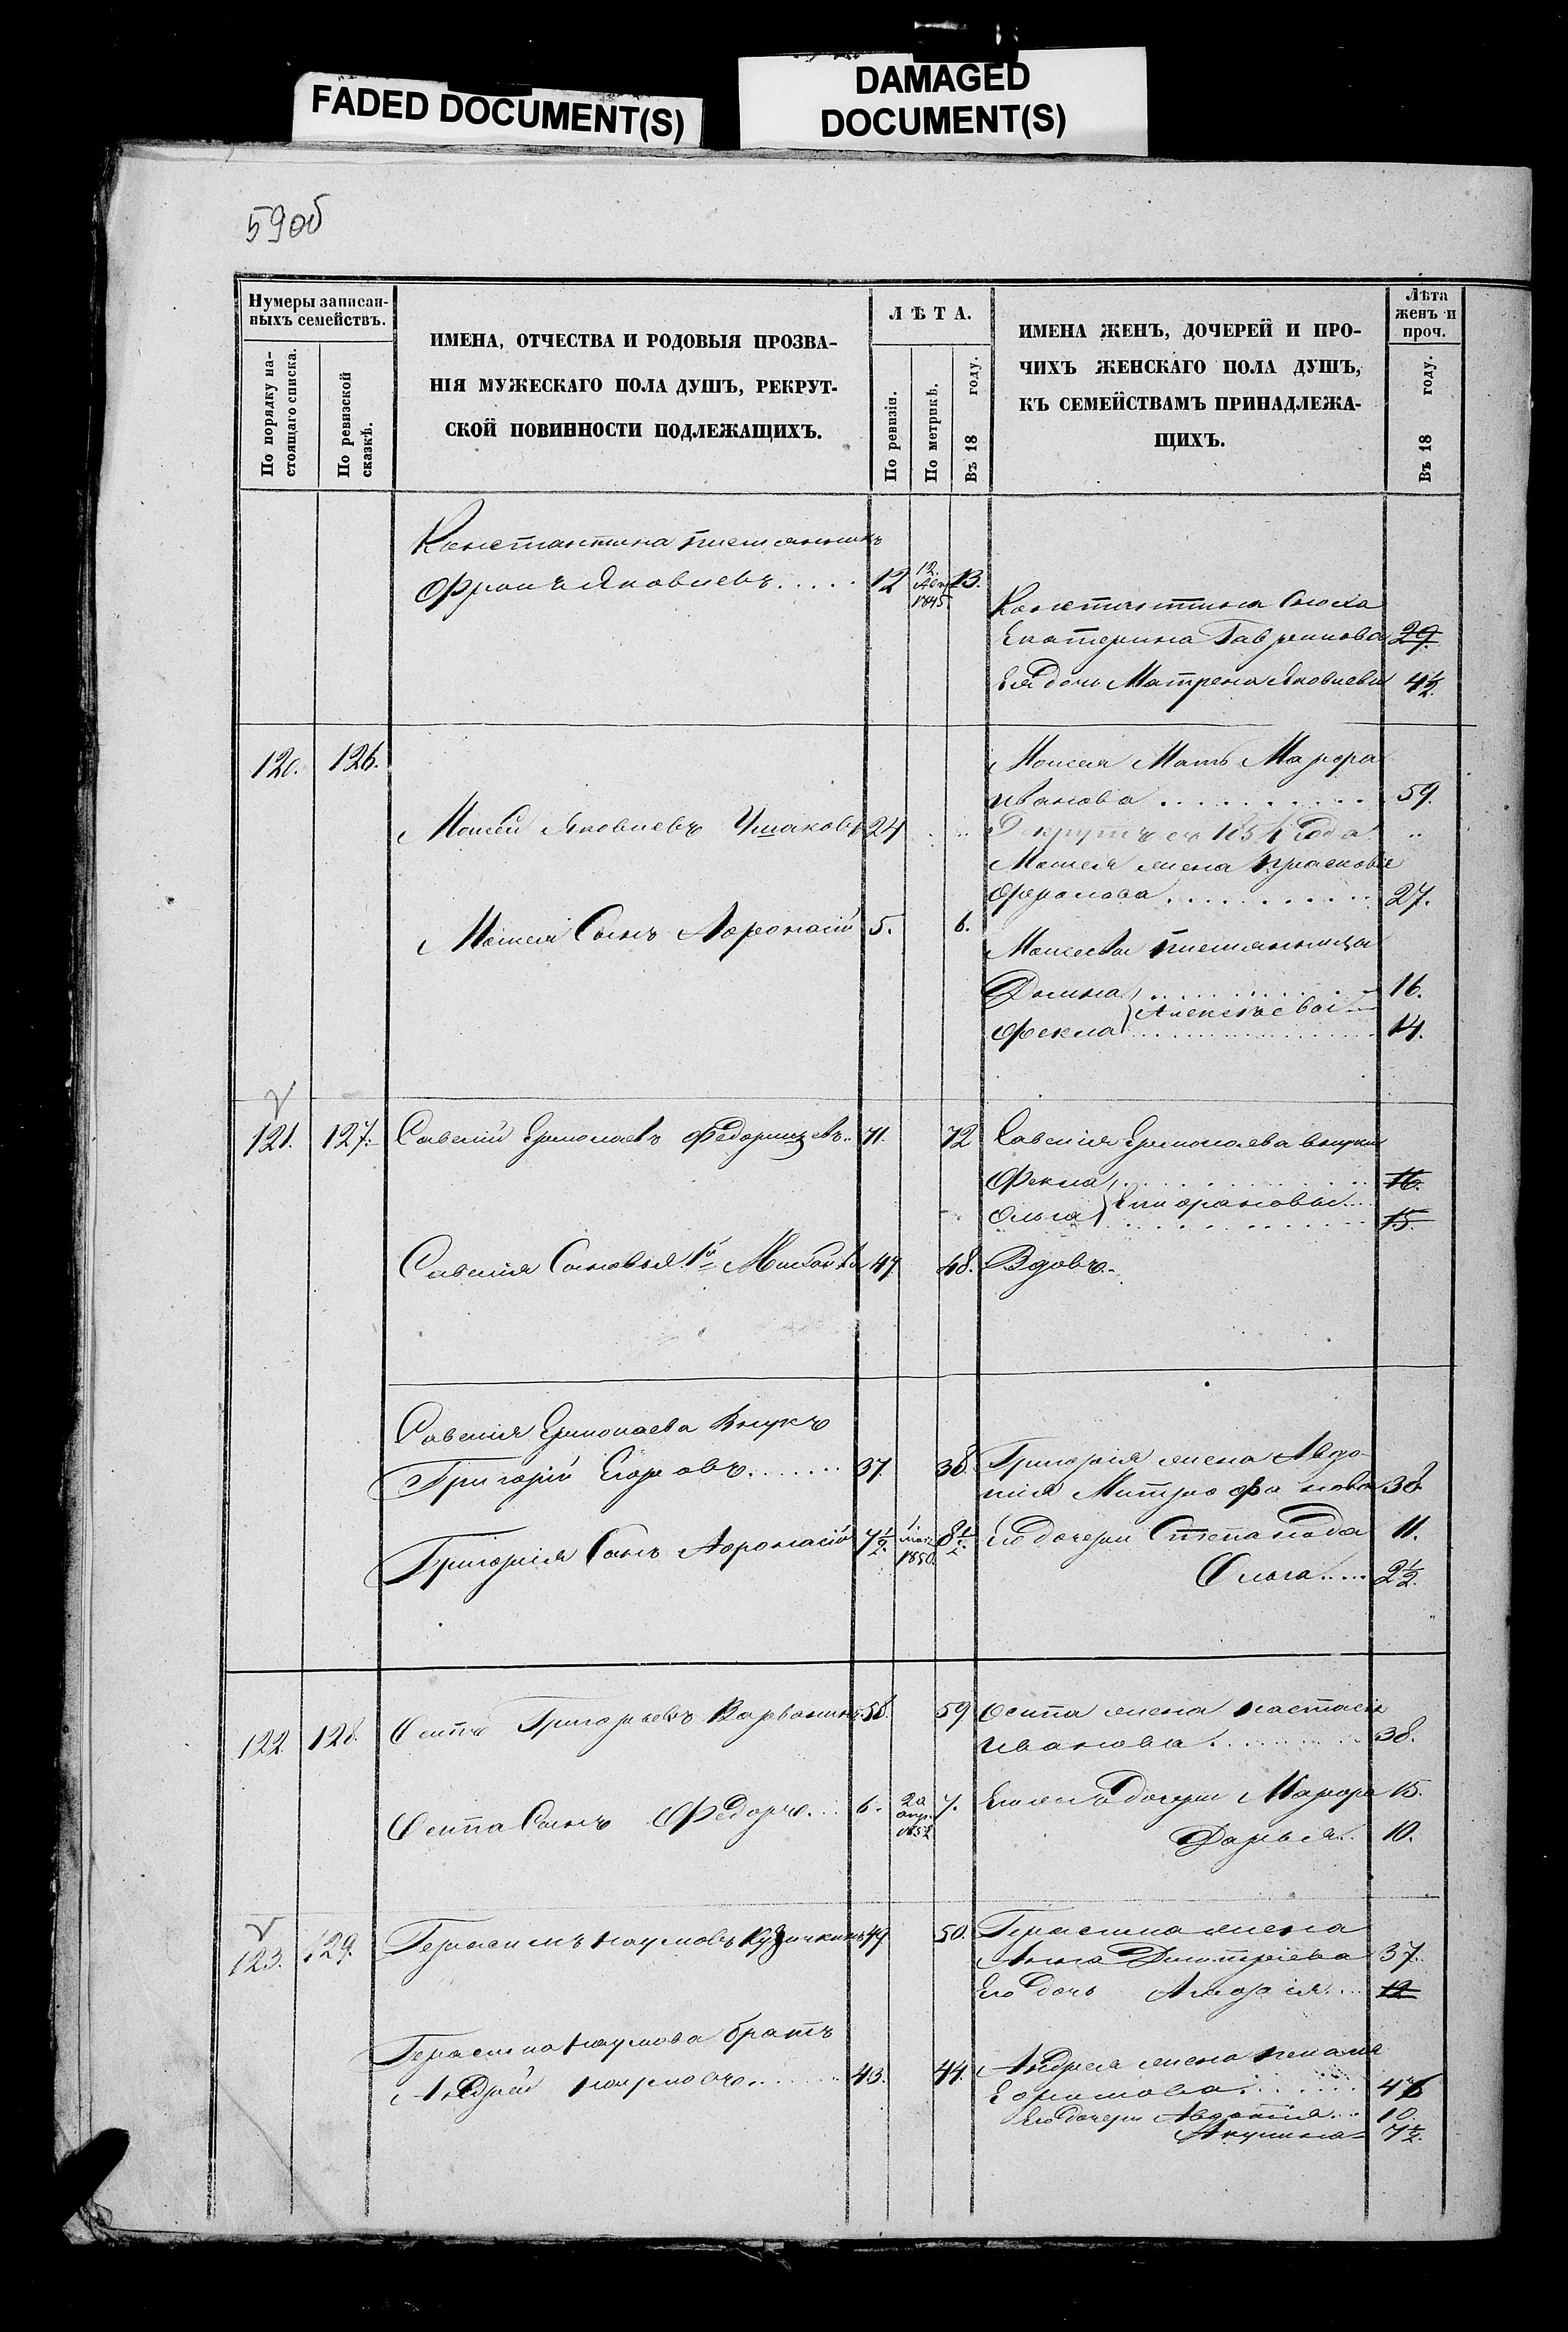 FADED DOCUMENT(S)
DAMAGED
DOCUMENT(S)
59об
Нумеры записан-
ныхъ семействъ.
По порядку на-
стоящаго списка.
По ревизской
сказкѣ.
ИМЕНА, ОТЧЕСТВА И РОДОВЫЯ ПРОЗВА-
НІЯ МУЖЕСКАГО ПОЛА ДУШЪ, РЕКРУТ-
СКОЙ ПОВИННОСТИ ПОДЛЕЖАЩИХЪ.
ЛѢТА.
По ревизіи.
По метрикѣ.
Въ 18 году.
ИМЕНА ЖЕНЪ, ДОЧЕРЕЙ И ПРО-
ЧИХЪ ЖЕНСКАГО ПОЛА ДУШЪ,
КЪ СЕМЕЙСТВАМЪ ПРИНАДЛЕЖА-
ЩИХЪ.
Лѣта
женъ и
проч.
Въ 18 году.
Константина племянникъ
Фролъ Яковлевъ..... 12 12. 1845 13.
Константина сноха
Екатерина Гаврилова 29.
Ея дочь Матрена Яковлева 4½.
120. 126.
Моисея Мать Марфа
Иванова.......... 59.
Моисей Яковлевъ Ушаковъ 24
Рекрутъ съ 1854 года
Моисея жена Прасковья
Фролова.......... 27.
Моисея Сынъ Афонасій 5. 6.
Моисея племянницы
Домна 16.
Алексѣевы
Фекла 14.
121. 127. Савелій Ермолаевъ 71. 72 Савелія Ермолаева внуки
Фекла 16.
Ольга 15.
Савелія Сыновья 1й 47 48. Вдовъ.
Савелія Ермолаева Внукъ
Григорій Егоровъ....... 37. 38. Григорія жена Авдо-
тія Митрофанова 38
Григорія Сынъ Афонасій 7½. 1850. 8½. Его дочери Степанида 11.
Ольга..... 2½.
122. 128. Осипъ Григорьевъ Варванинъ 58. 59 Осипа жена Настасья
Иванова.......... 38.
Осипа Сынъ Федоръ... 6. 20 апр. 1852 7. Его дочери Марфа 15.
Дарья.. 10.
123. 129. Герасимъ Наумовъ Кузичкинъ 49 50. Герасима жена
Анна Дмитріева 37.
Его дочь 12
Герасима Наумова братъ
Андрей Наумовъ....... 43. 44. Андрея жена Пелагія
Ефимова....... 46
Его дочери Авдотія... 10.
Акулина 7½.